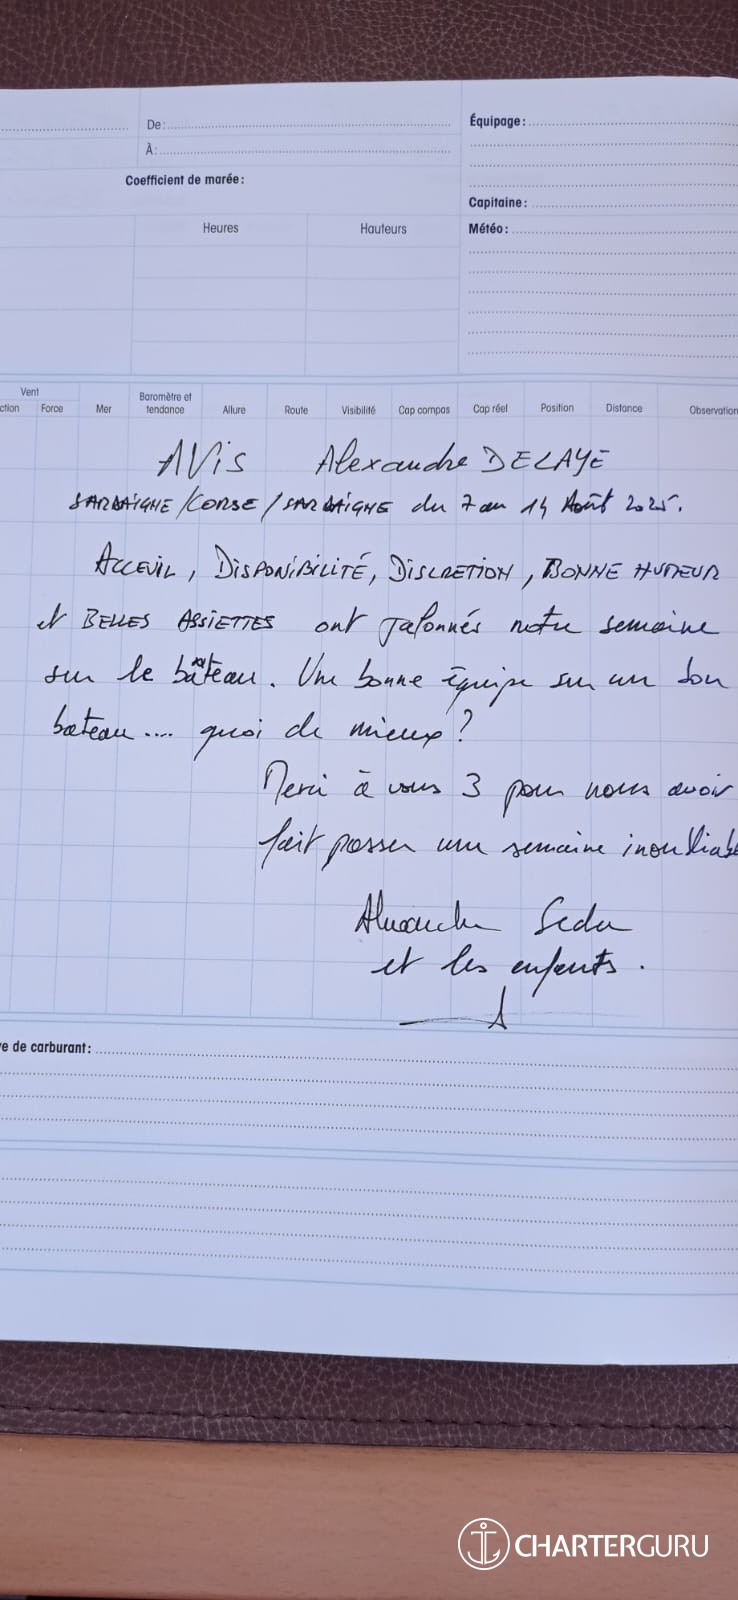 De:
Équipage:
À:
Coefficient de marée:
Capitaine:
Heures
Hauteurs
Météo:
Vent
ction
Force
Mer
Baromètre et
tendance
Allure
Route
Visibilité
Cap compas
Cap réel
Position
Distance
Observation
AVIS Alexandre DELAYE
SARDAIGNE/CORSE/SARDAIGNE du 7 au 14 Août 2025.
ACCEUIL, DISPONIBILITÉ, DISCRETION, BONNE HUMEUR
et BELLES ASSIETTES ont jalonnés notre semaine
sur le bâteau. Une bonne équipe sur un bon
bateau.... quoi de mieux?
Merci à vous 3 pour nous avoir
fait passer une semaine inoubliable
Alexandre
et les enfants.
e de carburant:
CHARTERGURU